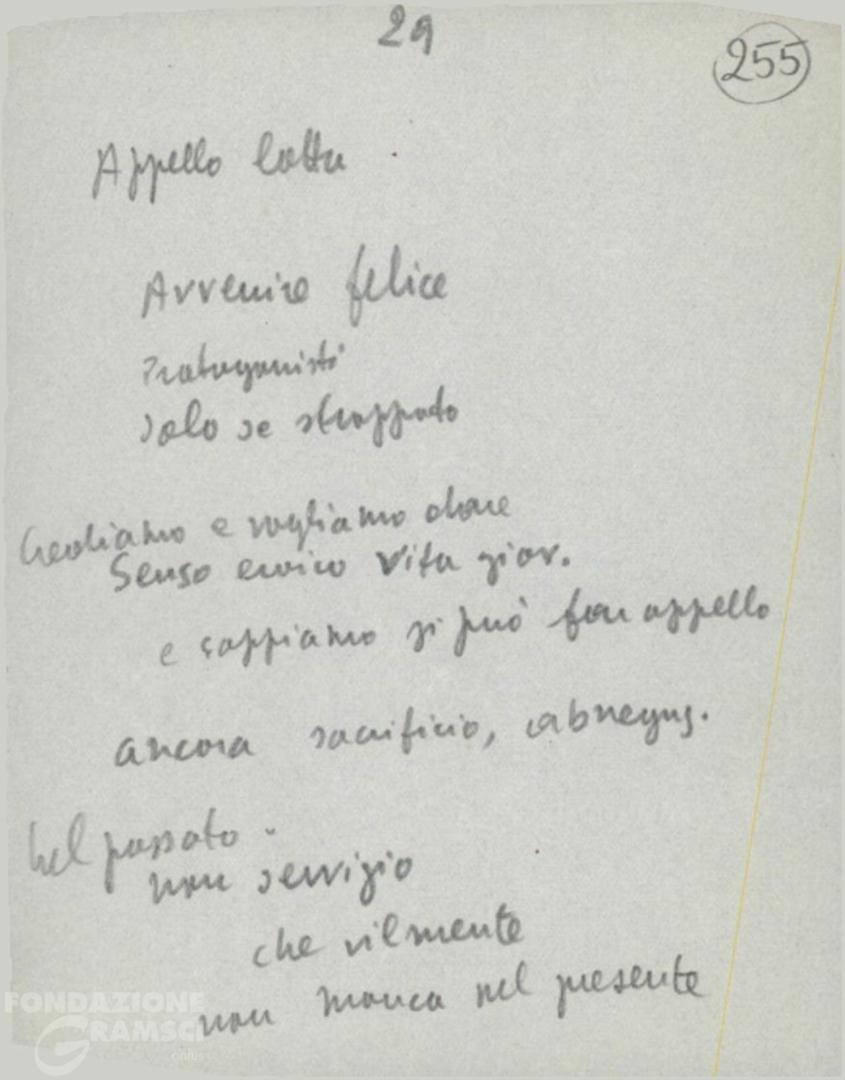 29
255
Appello lotta
Avvenire felice
Protagonisti
solo se strappato
Crediamo e vogliamo dare
Senso eroico vita giov.
e sappiamo si può fare appello
ancora sacrificio, abnegaz.
Nel passato.
non servizio
che vilmente
non manca nel presente
FONDAZIONE
GRAMSCI
onlus